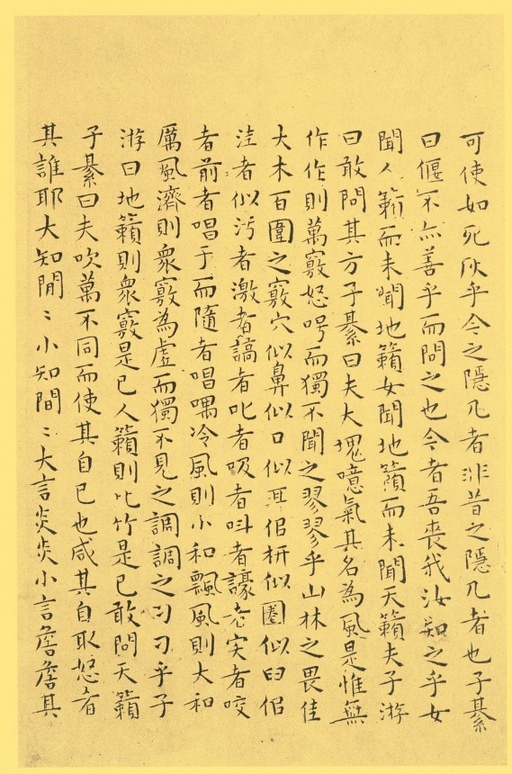 可使如死灰乎今之隱几者非昔之隱几者也子綦
曰偃不亦善乎而問之也今者吾喪我汝知之乎女
聞人籟而未聞地籟女聞地籟而未聞天籟夫子游
曰敢問其方子綦曰夫大塊噫氣其名為風是惟無
作作則萬竅怒呺而獨不聞之翏翏乎山林之畏佳
大木百圍之竅穴似鼻似口似耳似枅似圈似臼似
洼者似污者激者謞者叱者吸者叫者譹者宎者咬
者前者唱于而隨者唱喁冷風則小和飄風則大和
厲風濟則衆竅為虛而獨不見之調調之刁刁乎子
游曰地籟則衆竅是已人籟則比竹是已敢問天籟
子綦曰夫吹萬不同而使其自已也咸其自取怒者
其誰耶大知閒〻小知間〻大言炎炎小言詹詹其